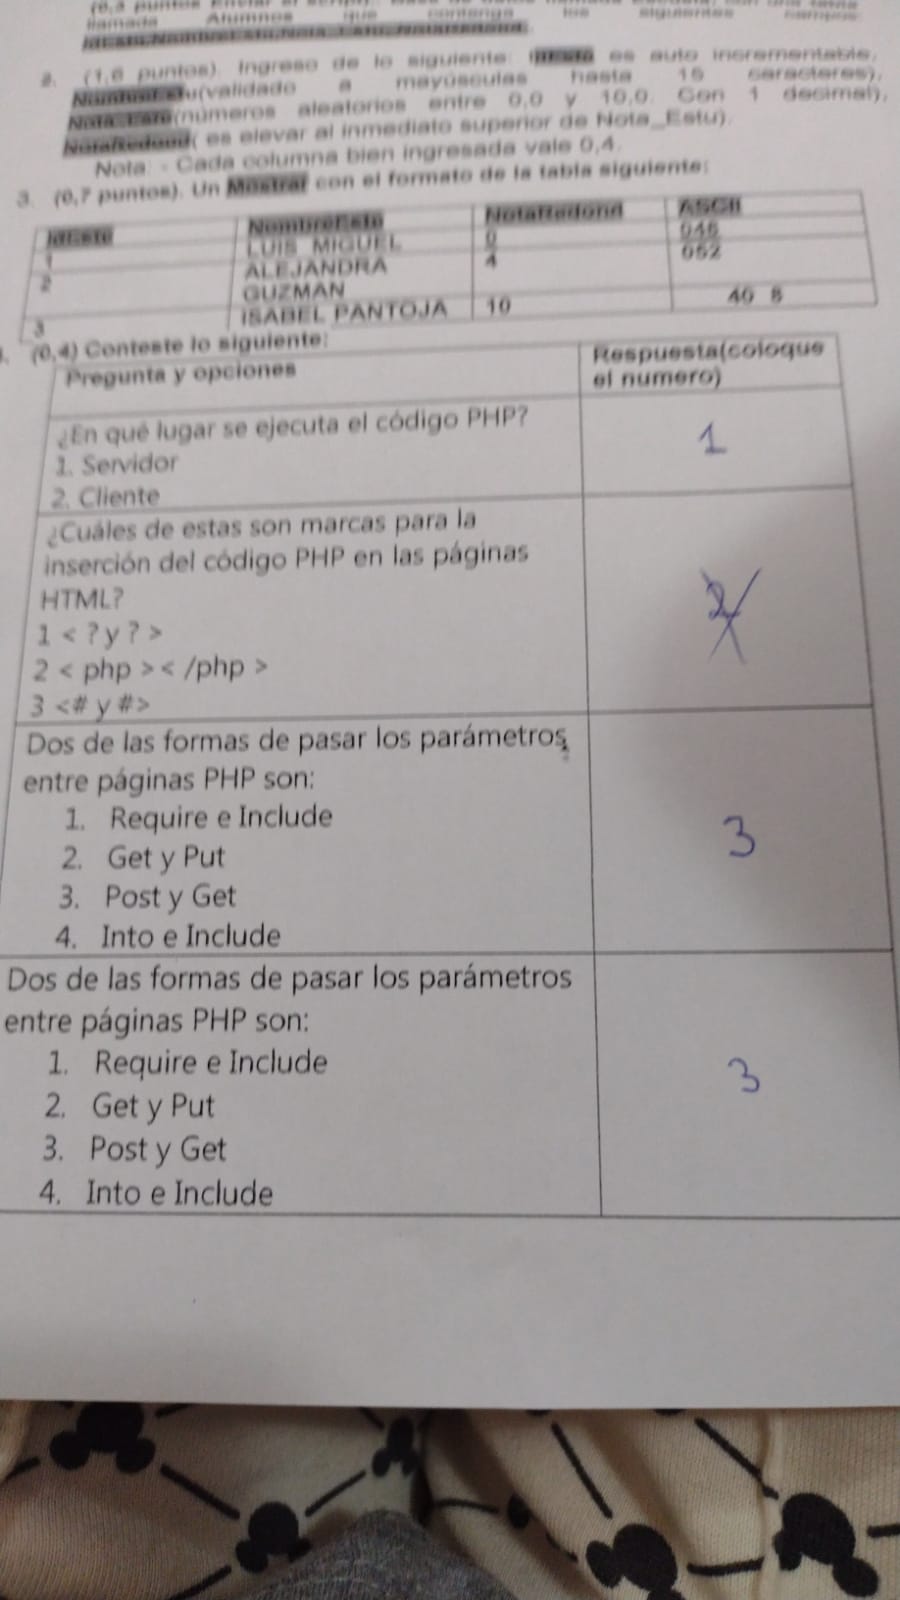 llamada Alumnos que contenga los siguientes campos:
2. (1,6 puntos). Ingreso de lo siguiente: es auto incrementable,
(validado a mayúsculas hasta 15 caracteres),
Nota_Estu(números aleatorios entre 0,0 y 10,0. Con 1 decimal),
NotaRedond( es elevar al inmediato superior de Nota_Estu).
Nota: - Cada columna bien ingresada vale 0,4.
3. (0,7 puntos). Un Mostrar con el formato de la tabla siguiente:
IdEstu NombreEstu NotaRedond ASCII
1 LUIS MIGUEL 0 048
2 ALEJANDRA GUZMAN 4 052
3 ISABEL PANTOJA 10
(0,4) Conteste lo siguiente:
Pregunta y opciones Respuesta(coloque
el numero)
¿En qué lugar se ejecuta el código PHP?
1. Servidor
2. Cliente
1
¿Cuáles de estas son marcas para la
inserción del código PHP en las páginas
HTML?
1 < ? y ? >
2 < php > < /php >
3 <# y #>
2
Dos de las formas de pasar los parámetros
entre páginas PHP son:
1. Require e Include
2. Get y Put
3. Post y Get
4. Into e Include
3
Dos de las formas de pasar los parámetros
entre páginas PHP son:
1. Require e Include
2. Get y Put
3. Post y Get
4. Into e Include
3